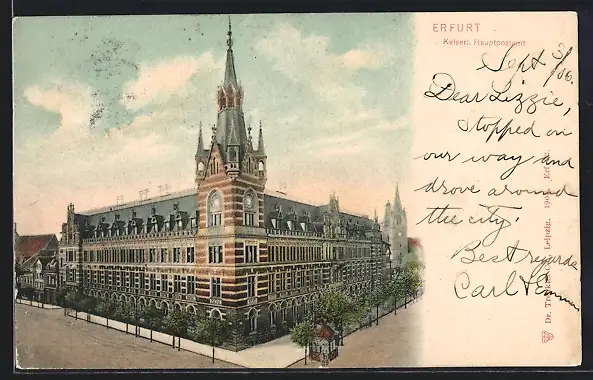 ERFURT
Kaiserl. Hauptpostamt
Sept 3/06.
Dear Lizzie,
stopped on
our way and
drove around
the city.
Best regards
Carl & Emma
Dr. Leipzig. 190